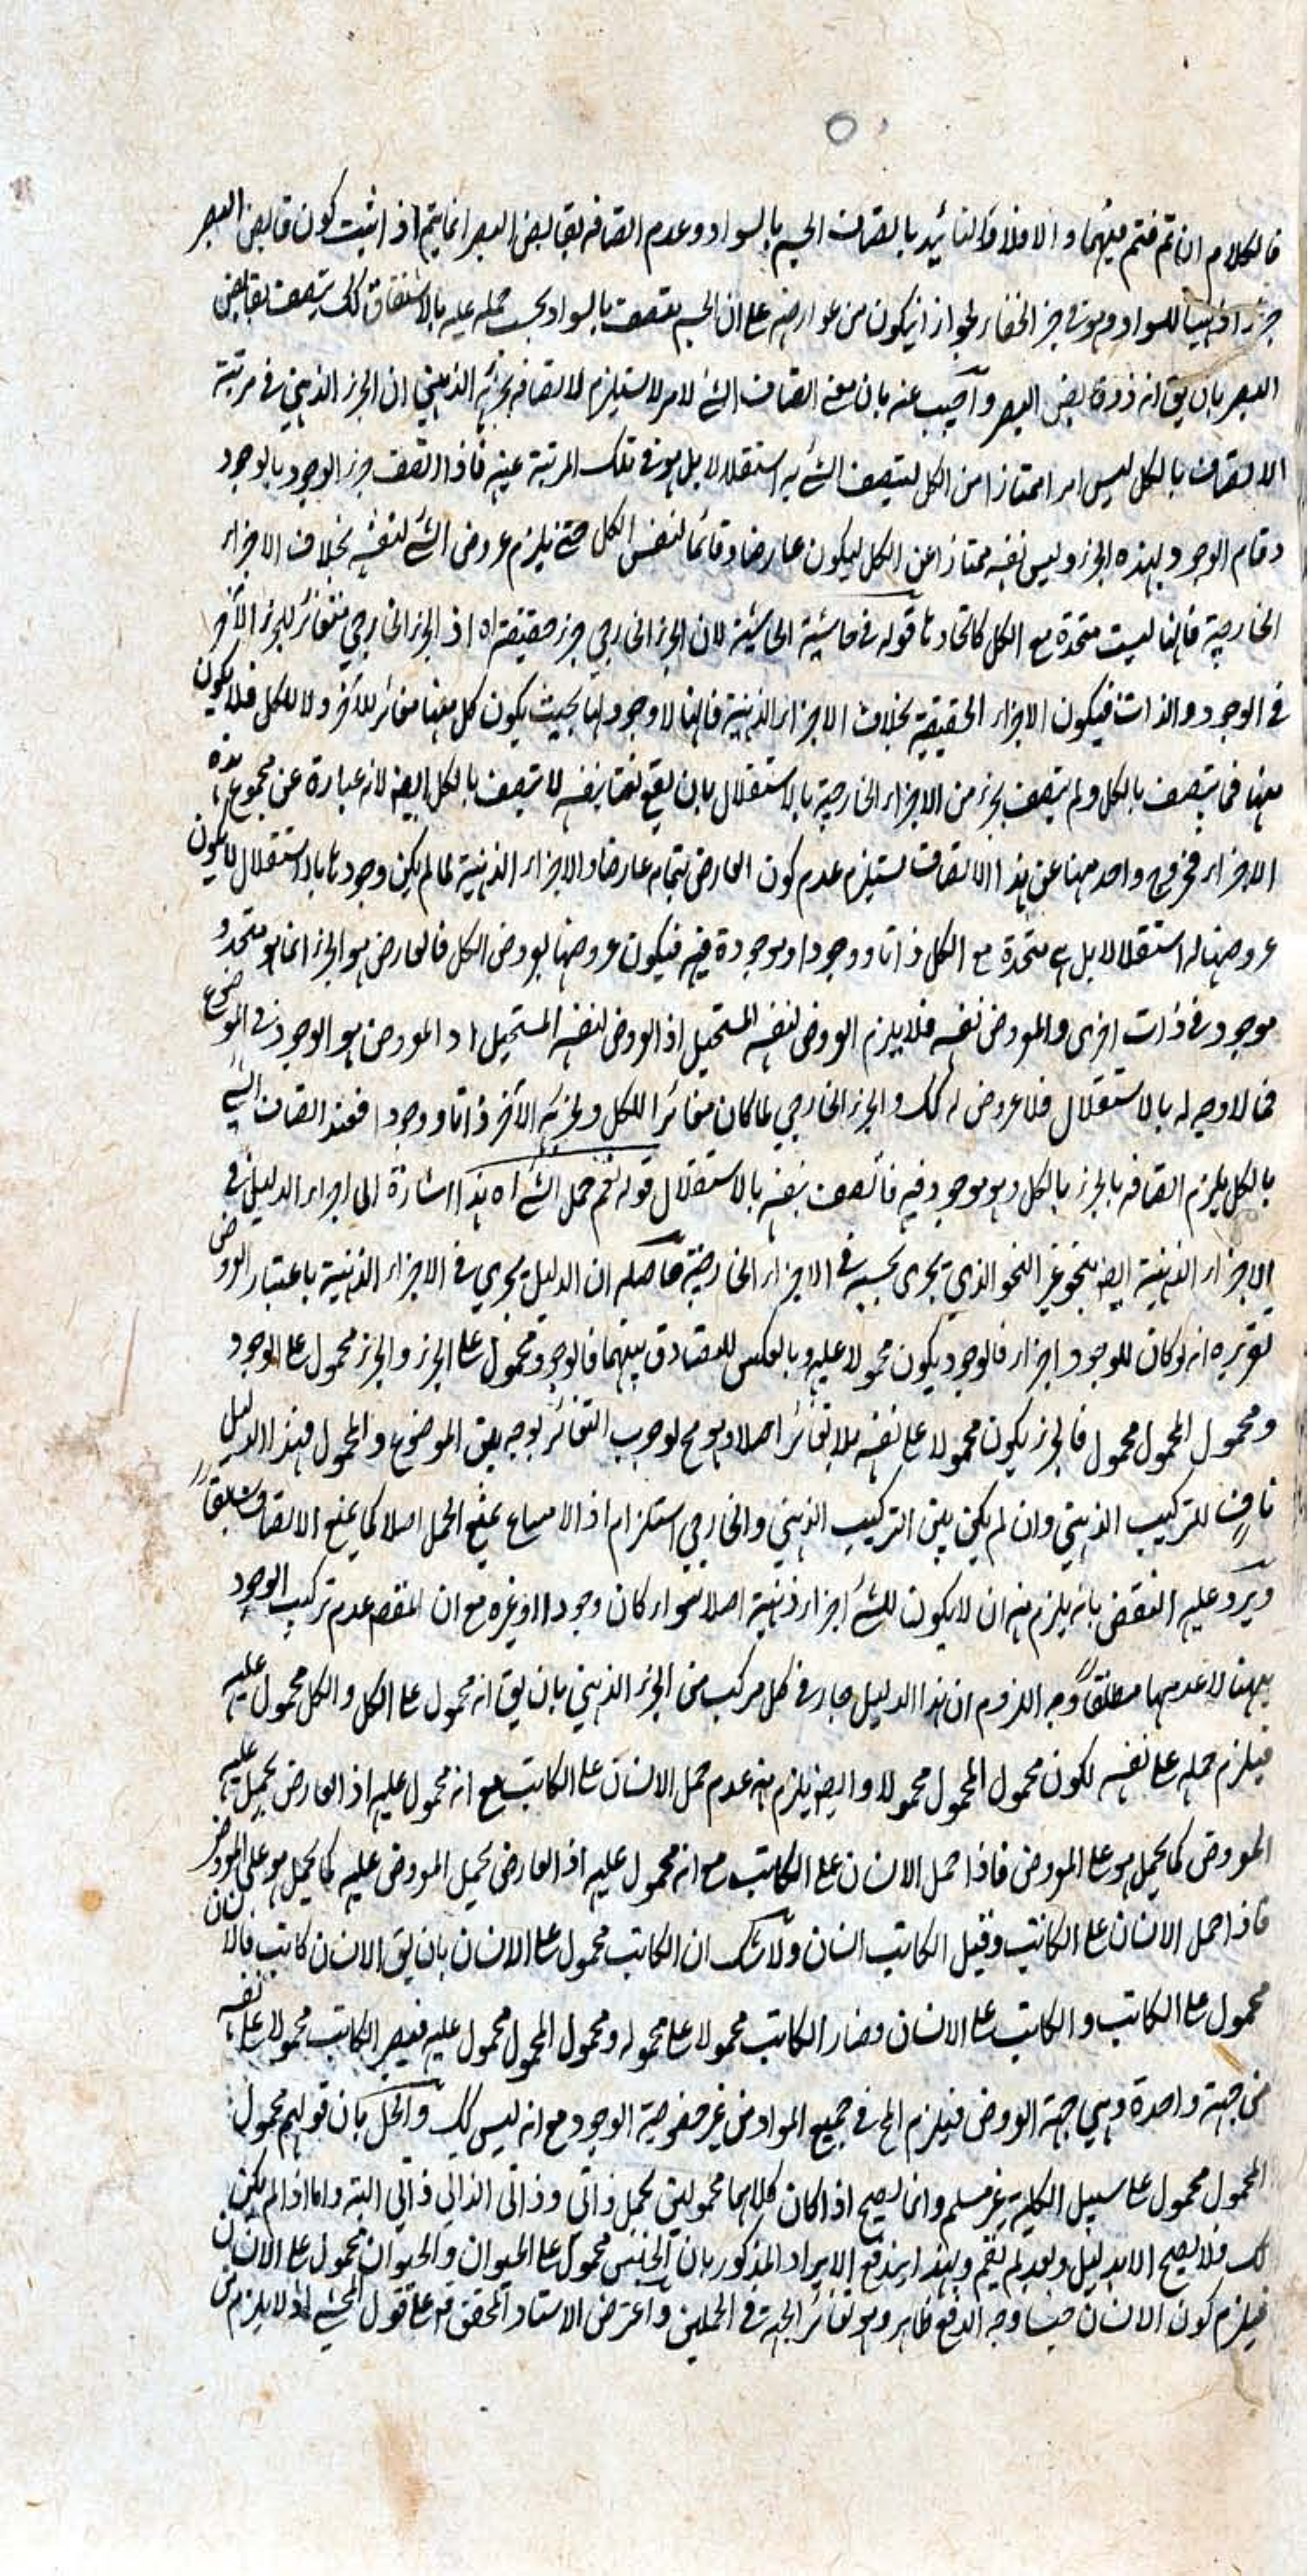 فالكلام ان تم فتم فيهما والا فلا فالتائيد باتصاف الجسم بالسواد وعدم اتصافه بقابض البصر انما يتم اذ اثبت كون قابض البصر
جزء ا ذهنيا للسواد وهو في حيز الخفاء لجواز ان يكون من عوارضه على ان الجسم يتصف بالسواد بحسب حمله عليه بالاشتقاق كك يتصف بقابض
البصر بان يق انه ذو قابض البصر واجيب عنه بان معنى اتصاف الشئ لامر لا يستلزم الاتصاف بجزئه الذهني ان الجزء الذهني في مرتبة
الاتصاف بالكل ليس امرا ممتازا من الكل ليتصف الشئ به استقلالا بل هو في تلك المرتبة عينه فاذا اتصف جزء الوجود بالوجود
وقام الوجود بهذه الجزء وليس نفسه ممتازا عن الكل ليكون عارضا وقائما لنفس الكل حتى يلزم عروض الشئ لنفسه بخلاف الاجزاء
الخارجية فانها ليست متحدة مع الكل كاتحادها قوله في حاشية الحاشية لان الجزء الخارجي جزء حقيقة اه اذ الجزء الخارجي متغائر للجزء الآخر
في الوجود والذات فيكون الاجزاء الحقيقية بخلاف الاجزاء الذهنية فانها لا وجود لها بحيث يكون كل منها مغائرا للآخر ولا للكل فلا يكون
منها فما يتصف بالكل ولم يتصف بجزء من الاجزاء الخارجية بالاستقلال بان يقع نعتا بنفسه لا يتصف بالكل ايضا لانه عبارة عن مجموع هذه
الاجزاء فخروج واحد منها عن هذا الاتصاف يستلزم عدم كون العارض بتمامه عارضا والاجزاء الذهنية لما لم يكن وجودها بالاستقلال لا يكون
عروضها له استقلالا بل هي متحدة مع الكل ذاتا ووجودا وموجودة فيه فيكون عروضها بعروض الكل فالعارض هو الجزء انما هو متحد و
موجود في ذات اخرى والمعروض نفسه فلا يلزم العروض لنفسه المستحيل اذ العروض لنفسه المستحيل اه المعروض هو الوجود في الموضوع
فما لا وجه له بالاستقلال فلا عروض له كك والجزء الخارجي لما كان مغائرا للكل ولجزئه الآخر ذاتا ووجودا فعند اتصاف الشئ
بالكل يلزم اتصافه بالجزء بالكل وهو موجود فيه فاتصف بنفسه بالاستقلال قوله نعم حمل الشئ اه هذا اشارة الى اجراء الدليل في
الاجزاء الذهنية ايضا بنحو غير النحو الذي يجري بحسبه في الاجزاء الخارجية حاصله ان الدليل يجري في الاجزاء الذهنية باعتبار العروض
تقريره انه لو كان للوجود اجزاء فالوجود يكون محمولا عليه وبالعكس للتصادق بينهما فالوجود محمول على الجزء والجزء محمول على الوجود
ومحمول المحمول محمول فالجزء يكون محمولا على نفسه بلا تغائر اصلا وهو مح لوجوب التغائر بوجه بين الموضوع والمحمول فهذا الدليل
ناف للتركيب الذهني وان لم يكن بين التركيب الذهني والخارجي استلزام اذ الامتناع يمنع الحمل اصلا كما يمنع الاتصاف مطلقا
ويرد عليه النقض بانه يلزم منه ان لا يكون للشئ اجزاء ذهنية اصلا سواء كان وجودا او غيره مع ان المقص عدم تركيب الوجود
ههنا لا عدمها مطلقا وجه اللزوم ان هذا الدليل جار في كل مركب من الجزء الذهني بان يق انه محمول على الكل والكل محمول عليه
فيلزم حمله على نفسه لكون محمول المحمول محمولا وايضا يلزم منه عدم حمل الانسان على الكاتب مع انه محمول عليه اذ العارض يحمل عليه
المعروض كما يحمل هو على المعروض فاذا حمل الانسان على الكاتب مع انه محمول عليه اذ العارض يحمل المعروض عليه كما يحمل هو على المعروض
فاذا حمل الانسان على الكاتب وقيل الكاتب انسان ولا شك ان الكاتب محمول على الانسان بان يق الانسان كاتب فالانسان
محمول على الكاتب والكاتب على الانسان فصار الكاتب محمولا على محموله ومحمول المحمول محمول عليه فيصير الكاتب محمولا على نفسه
من جهة واحدة وهي جهة العروض فيلزم المح في جميع المواد من غير خصوصية الوجود مع انه ليس كك والحل بان قولهم محمول
المحمول محمول على سبيل الكلية غير مسلم وانما يصح اذا كان كلاهما محمولين بحمل ذاتي وذاتي الذاتي ذاتي البتة واما اذا لم يكن
كك فلا يصح الا بدليل وبعد لم يقم وبهذا يندفع الايراد المذكور بان الجنس محمول على الحيوان والحيوان محمول على الانسان
فيلزم كون الانسان جنسا وجه الدفع ظاهر وهو تغائر الجهة في الحملين واعترض الاستاد المحقق قده على قول المحشي اذ لا يلزم من